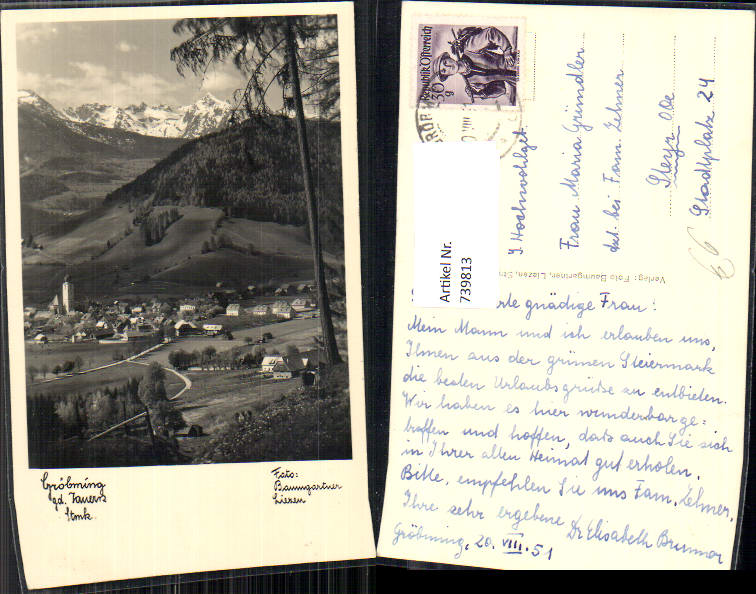 Gröbming
gd. Tauern
Stmk.
Foto:
Baumgartner
Liezen
Republik Österreich
30
g
Artikel Nr.
739813
Frau Maria Grindler
bei Fam. Zehner
Steyr Oöe
Stadtplatz 24
66
Verlag: Foto Baumgartner, Liezen, Str
rte gnädige Frau!
Mein Mann und ich erlauben uns,
Ihnen aus der grünen Steiermark
die besten Urlaubsgrüße zu entbieten.
Wir haben es hier wunderbar ge=
troffen und hoffen, dass auch Sie sich
in Ihrer alten Heimat gut erholen.
Bitte, empfehlen Sie uns Fam. Zehner.
Ihre sehr ergebene Dr Elisabeth Brunnar
Gröbming, 20. VIII. 51